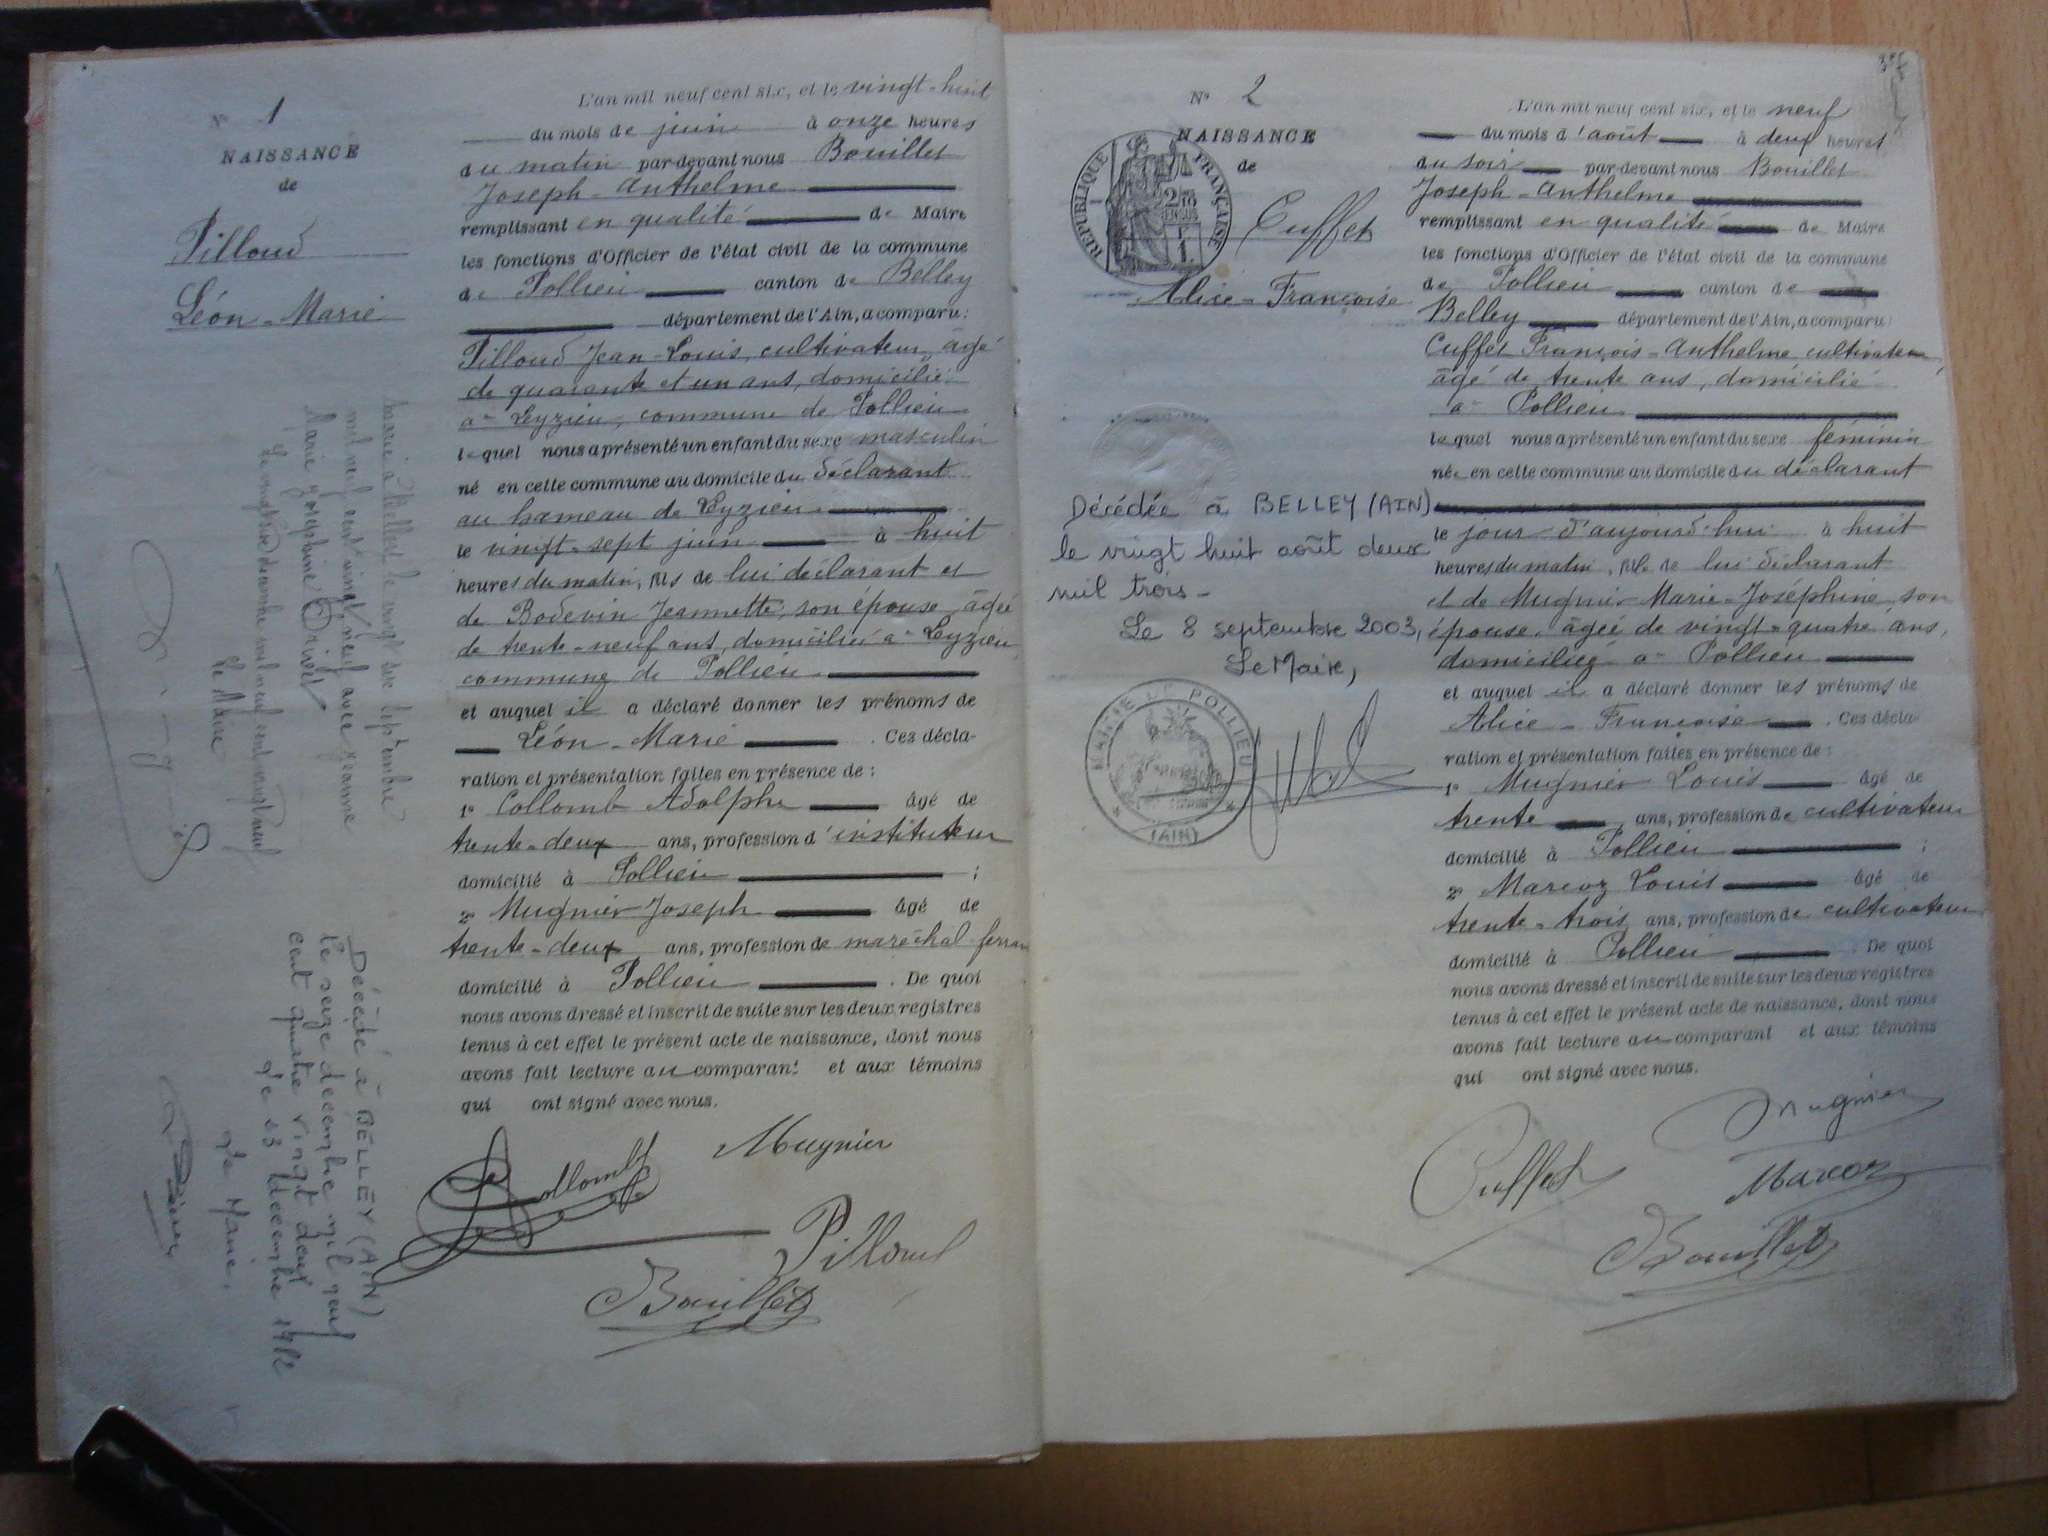 N° 1
NAISSANCE
de
Pilloud
Léon-Marie
L'an mil neuf cent six, et le vingt-huit
du mois de juin à onze heures
du matin par-devant nous Bouillet
Joseph-Anthelme
remplissant en qualité de Maire
les fonctions d'Officier de l'état civil de la commune
de Pollieu canton de Belley
département de l'Ain, a comparu:
Pilloud Jean-Louis, cultivateur, âgé
de quarante et un ans, domicilié
à Leyzieu, commune de Pollieu
lequel nous a présenté un enfant du sexe masculin
né en cette commune au domicile du déclarant
au hameau de Leyzieu
le vingt-sept juin à huit
heures du matin, fils de lui déclarant et
de Bodevin Jeannette, son épouse, âgée
de trente-neuf ans, domiciliée à Leyzieu
commune de Pollieu
et auquel il a déclaré donner les prénoms de
Léon-Marie . Ces décla-
ration et présentation faites en présence de :
1° Collomb Adolphe âgé de
trente-deux ans, profession d'instituteur
domicilié à Pollieu ;
2° Mugnier Joseph âgé de
trente-deux ans, profession de maréchal ferran
domicilié à Pollieu . De quoi
nous avons dressé et inscrit de suite sur les deux registres
tenus à cet effet le présent acte de naissance, dont nous
avons fait lecture au comparant et aux témoins
qui ont signé avec nous.
Collomb
Mugnier
Pilloud
Bouillet
Marié à Belley le vingt six septembre
mil neuf cent vingt neuf avec Jeanne
Marie Joséphine
Le Maire
Décédé à BELLEY (AIN)
le seize décembre mil neuf
cent quatre vingt deux
Le 23 décembre 1982
Le Maire,
N° 2
NAISSANCE
de
RÉPUBLIQUE FRANÇAISE
Cuffet
Alice-Françoise
Décédée à BELLEY (AIN)
le vingt huit août deux
mil trois-
Le 8 septembre 2003,
Le Maire,
MAIRIE DE POLLIEU
(AIN)
L'an mil neuf cent six, et le neuf
du mois d'août à deux heures
du soir par-devant nous Bouillet
Joseph-Anthelme
remplissant en qualité de Maire
les fonctions d'Officier de l'état civil de la commune
de Pollieu canton de
Belley département de l'Ain, a comparu:
Cuffet François-Anthelme cultivateur,
âgé de trente ans, domicilié
à Pollieu
lequel nous a présenté un enfant du sexe féminin
née en cette commune au domicile du déclarant
le jour d'aujourd'hui à huit
heures du matin, fille de lui déclarant
et de Mugnier Marie-Joséphine, son
épouse, âgée de vingt-quatre ans,
domiciliée à Pollieu
et auquel il a déclaré donner les prénoms de
Alice-Françoise . Ces décla-
ration et présentation faites en présence de :
1° Mugnier Louis âgé de
trente ans, profession de cultivateur
domicilié à Pollieu ;
2° Marcoz Louis âgé de
trente-trois ans, profession de cultivateur
domicilié à Pollieu . De quoi
nous avons dressé et inscrit de suite sur les deux registres
tenus à cet effet le présent acte de naissance, dont nous
avons fait lecture au comparant et aux témoins
qui ont signé avec nous.
Mugnier
Cuffet
Marcoz
Bouillet